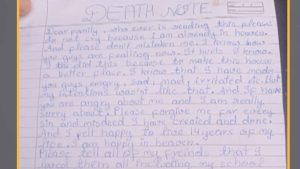 DEATH NOTE
Dear family, who ever is reading this please
do not cry because I am already in heaven.
And please don't mistake me. I know how
you guys are feeling now. It hurts I know.
I did this because to make this house
a better place. I know that I have made
you guys angry, sad, most irritated etc. But
my intentions wasn't like that. And if have
you are angry about me and I am really
sorry about. Please forgive me for every
sin and misdeed I have created and done.
And I felt happy to live 14 years of my
life. I am happy in heaven.
Please tell all of my freinds that I
loved them all including my school